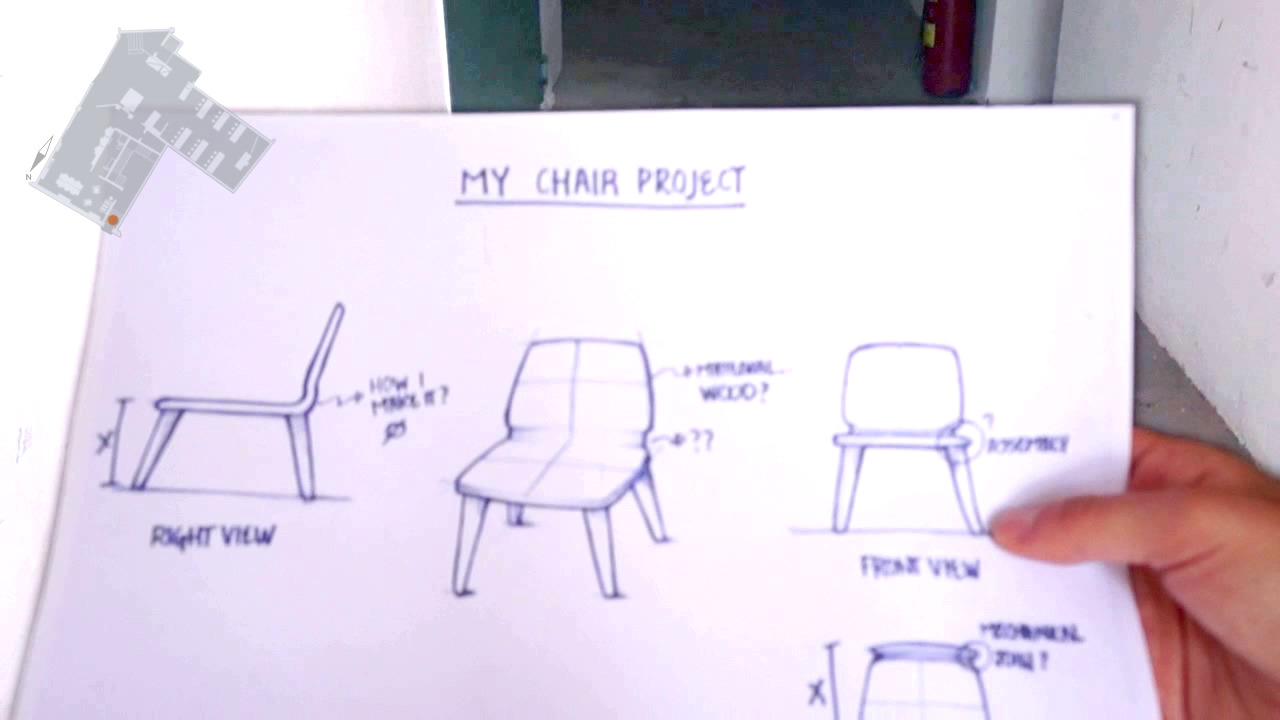 N
MY CHAIR PROJECT
HOW I
MAKE IT?
X
RIGHT VIEW
MATERIAL
WOOD?
??
?
ASSEMBLY
FRONT VIEW
MECHANICAL
JOIN?
X